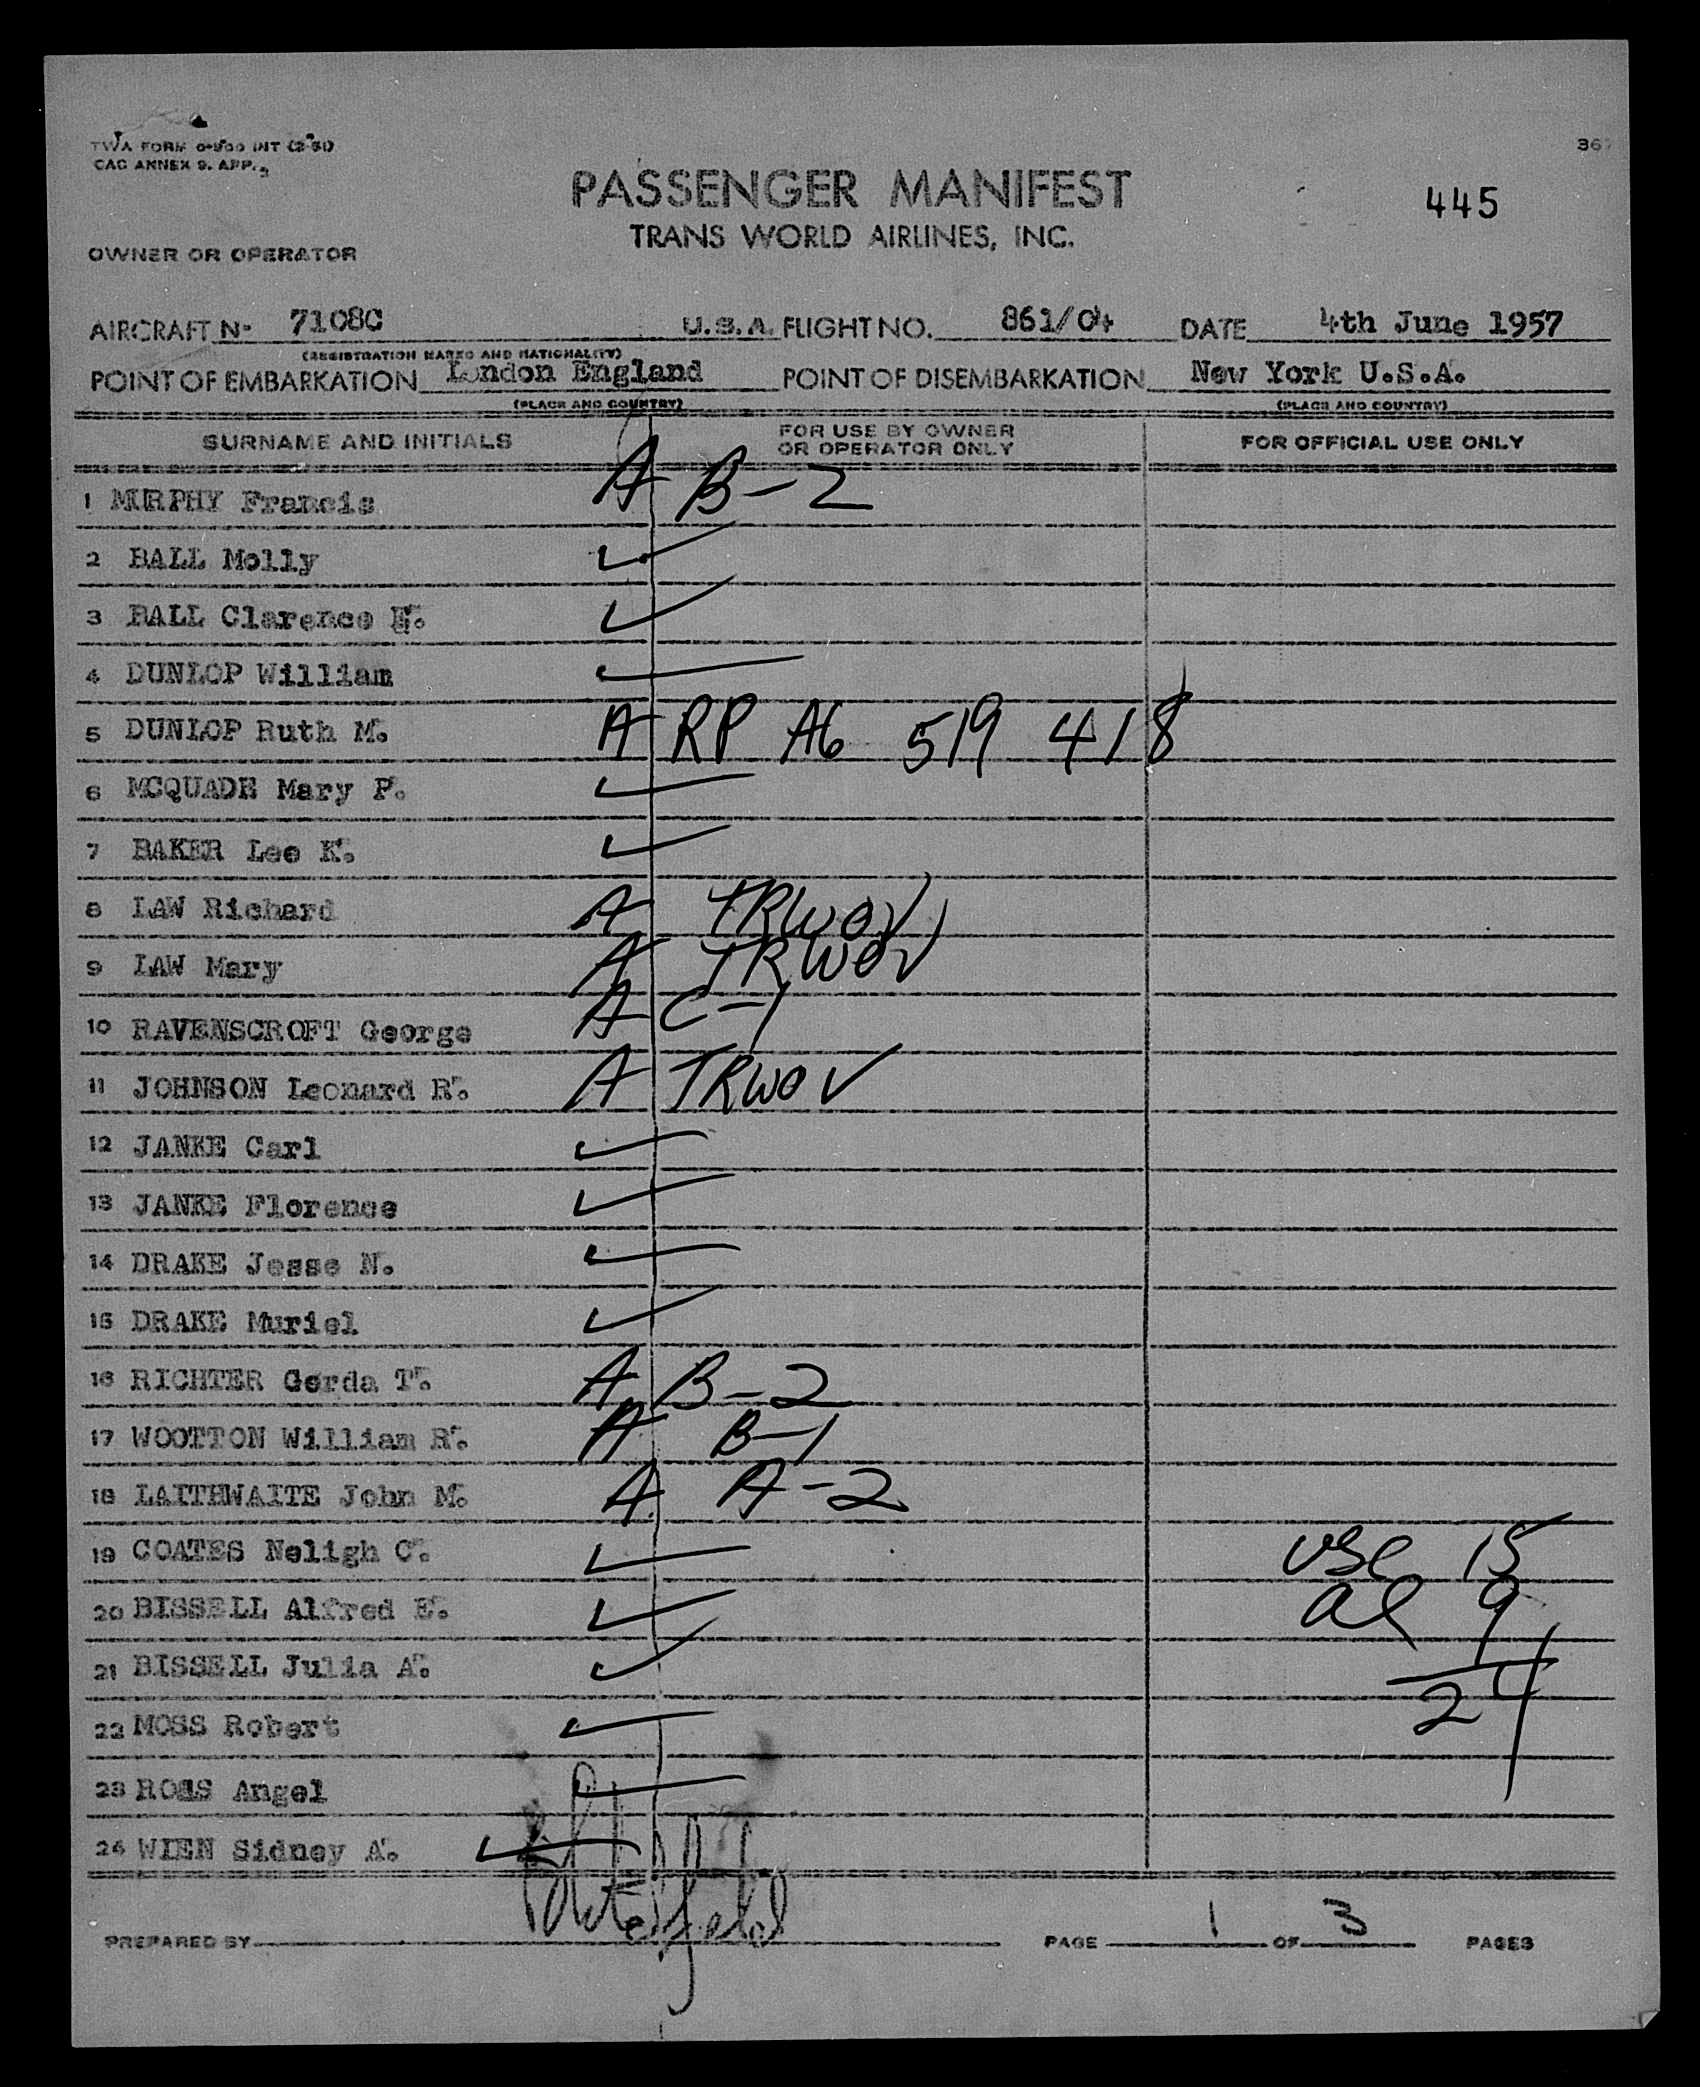 TWA FORM 0-900 INT (2-51)
CAC ANNEX 9. APP.
PASSENGER MANIFEST
445
TRANS WORLD AIRLINES, INC.
OWNER OR OPERATOR
AIRCRAFT Nº 7108C U.S.A. FLIGHT NO. 861/04 DATE 4th June 1957
(REGISTRATION MARKS AND NATIONALITY)
POINT OF EMBARKATION London England POINT OF DISEMBARKATION New York U.S.A.
(PLACE AND COUNTRY) (PLACE AND COUNTRY)
SURNAME AND INITIALS FOR USE BY OWNER OR OPERATOR ONLY FOR OFFICIAL USE ONLY
1 MURPHY Francis A B-2
2 BALL Molly ✓
3 BALL Clarence E. ✓
4 DUNLOP William ✓
5 DUNLOP Ruth M. A RP A6 519 418
6 MCQUADE Mary P. ✓
7 BAKER Lee K. ✓
8 LAW Richard A TRWOV
9 LAW Mary A TRWOV
10 RAVENSCROFT George A C-1
11 JOHNSON Leonard R. A TRWOV
12 JANKE Carl ✓
13 JANKE Florence ✓
14 DRAKE Jesse N. ✓
15 DRAKE Muriel ✓
16 RICHTER Gerda T. A B-2
17 WOOTTON William R. A B-1
18 LAITHWAITE John M. A A-2
19 COATES Neligh C. ✓ USC 15
20 BISSELL Alfred E. ✓ al 9
21 BISSELL Julia A. ✓ 24
22 MOSS Robert ✓
23 ROSS Angel ✓
24 WIEN Sidney A. ✓
PREPARED BY PAGE 1 OF 3 PAGES